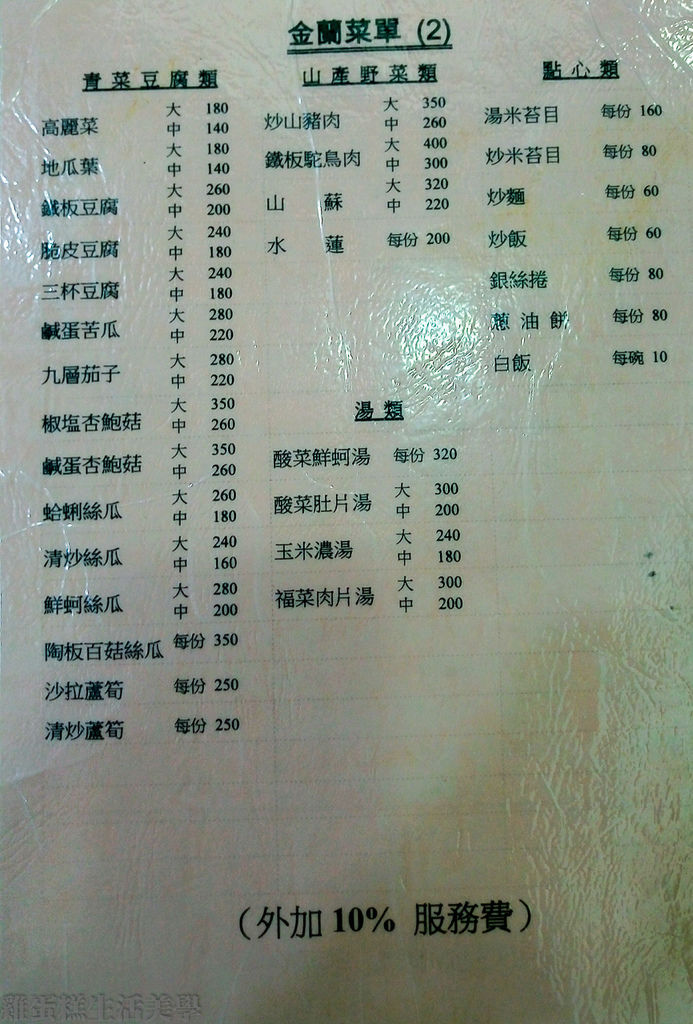 金蘭菜單 (2)
青菜豆腐類
高麗菜 大 180
中 140
地瓜葉 大 180
中 140
鐵板豆腐 大 260
中 200
脆皮豆腐 大 240
中 180
三杯豆腐 大 240
中 180
鹹蛋苦瓜 大 280
中 220
九層茄子 大 280
中 220
椒塩杏鮑菇 大 350
中 260
鹹蛋杏鮑菇 大 350
中 260
蛤蜊絲瓜 大 260
中 180
清炒絲瓜 大 240
中 160
鮮蚵絲瓜 大 280
中 200
陶板百菇絲瓜 每份 350
沙拉蘆筍 每份 250
清炒蘆筍 每份 250
山產野菜類
炒山豬肉 大 350
中 260
鐵板駝鳥肉 大 400
中 300
山蘇 大 320
中 220
水蓮 每份 200
湯類
酸菜鮮蚵湯 每份 320
酸菜肚片湯 大 300
中 200
玉米濃湯 大 240
中 180
福菜肉片湯 大 300
中 200
點心類
湯米苔目 每份 160
炒米苔目 每份 80
炒麵 每份 60
炒飯 每份 60
銀絲捲 每份 80
蔥油餅 每份 80
白飯 每碗 10
(外加 10% 服務費)
雞蛋糕生活美學